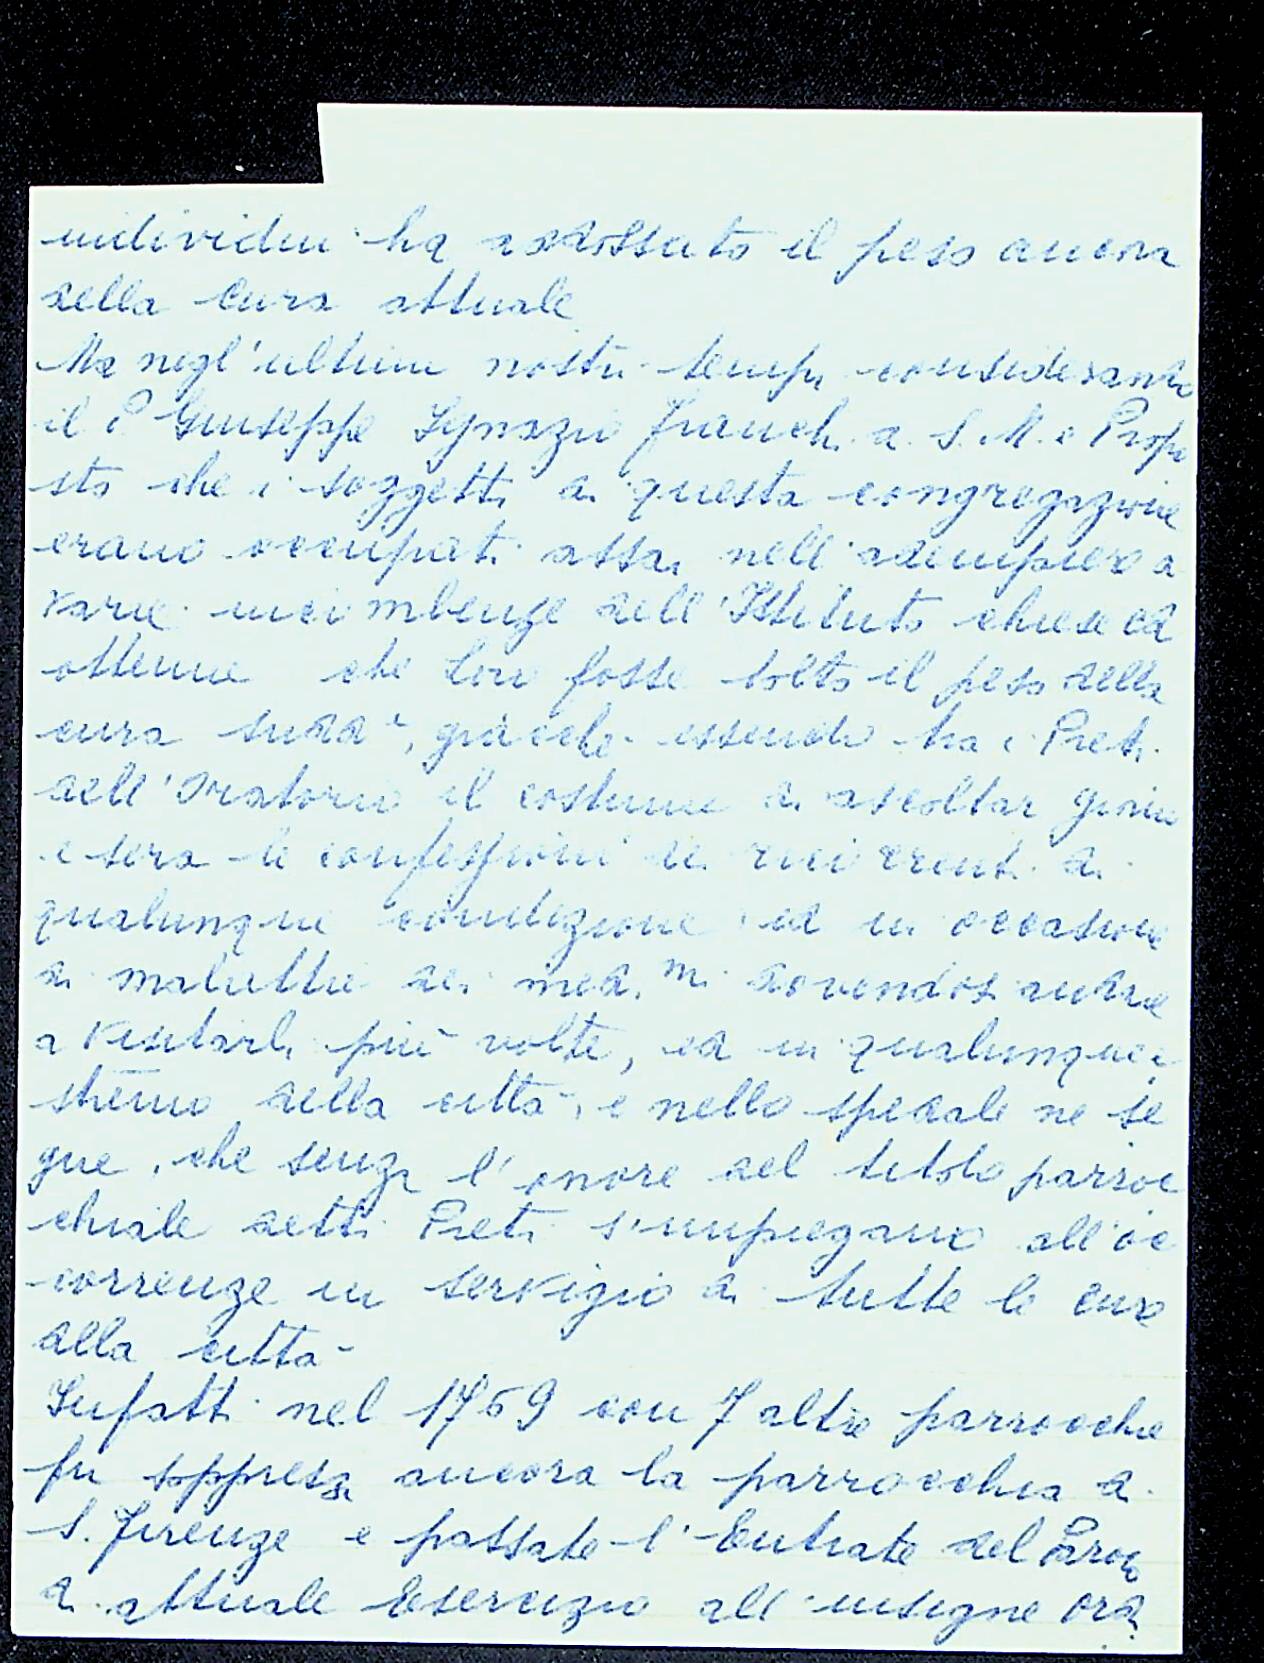 individui ha addossato il peso ancora
della Cura attuale
Ma negl'ultimi nostri tempi considerando
il P Giuseppe Ignazio Franchi a. S. M. e Propo
sto che i soggetti di questa congregazione
erano occupati assai nell'adempiere a
varie incombenze dell'Istituto chiese ed
ottenne che loro fosse tolto il peso della
cura sudd.ª, giacché essendo tra i Preti
dell'Oratorio il costume di ascoltar giorno
e sera le confessioni di di
qualunque condizione ed in occasione
di malattie dei med.mi dovendosi andare
a visitarli più volte, ed in qualunque e
stremo della città, e nello spedale ne se
gue, che senza l'onore del titolo parroc
chiale detti Preti s'impiegano all'oc
correnze in servigio di tutte le cure
della città
Infatti nel 1769 con 7 altre parrocchie
fu soppressa ancora la parrocchia di
S. Firenze e passate l'Entrate del Parroco
di attuale Esercizio all'insigne ora